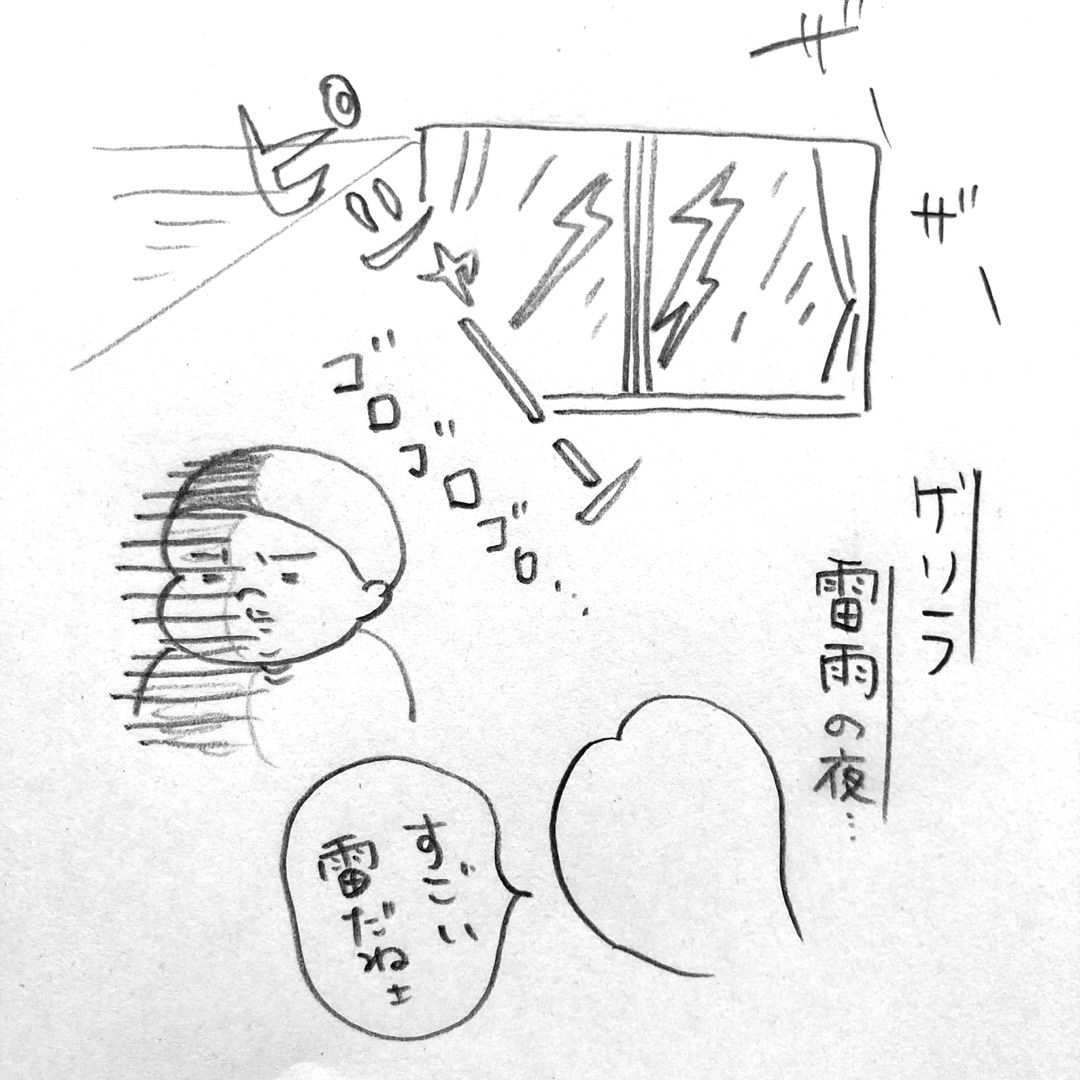 ザー
ザー
ピシャーン
ゴロゴロゴロ...
ゲリラ
雷雨の夜…
すごい
雷だねェ